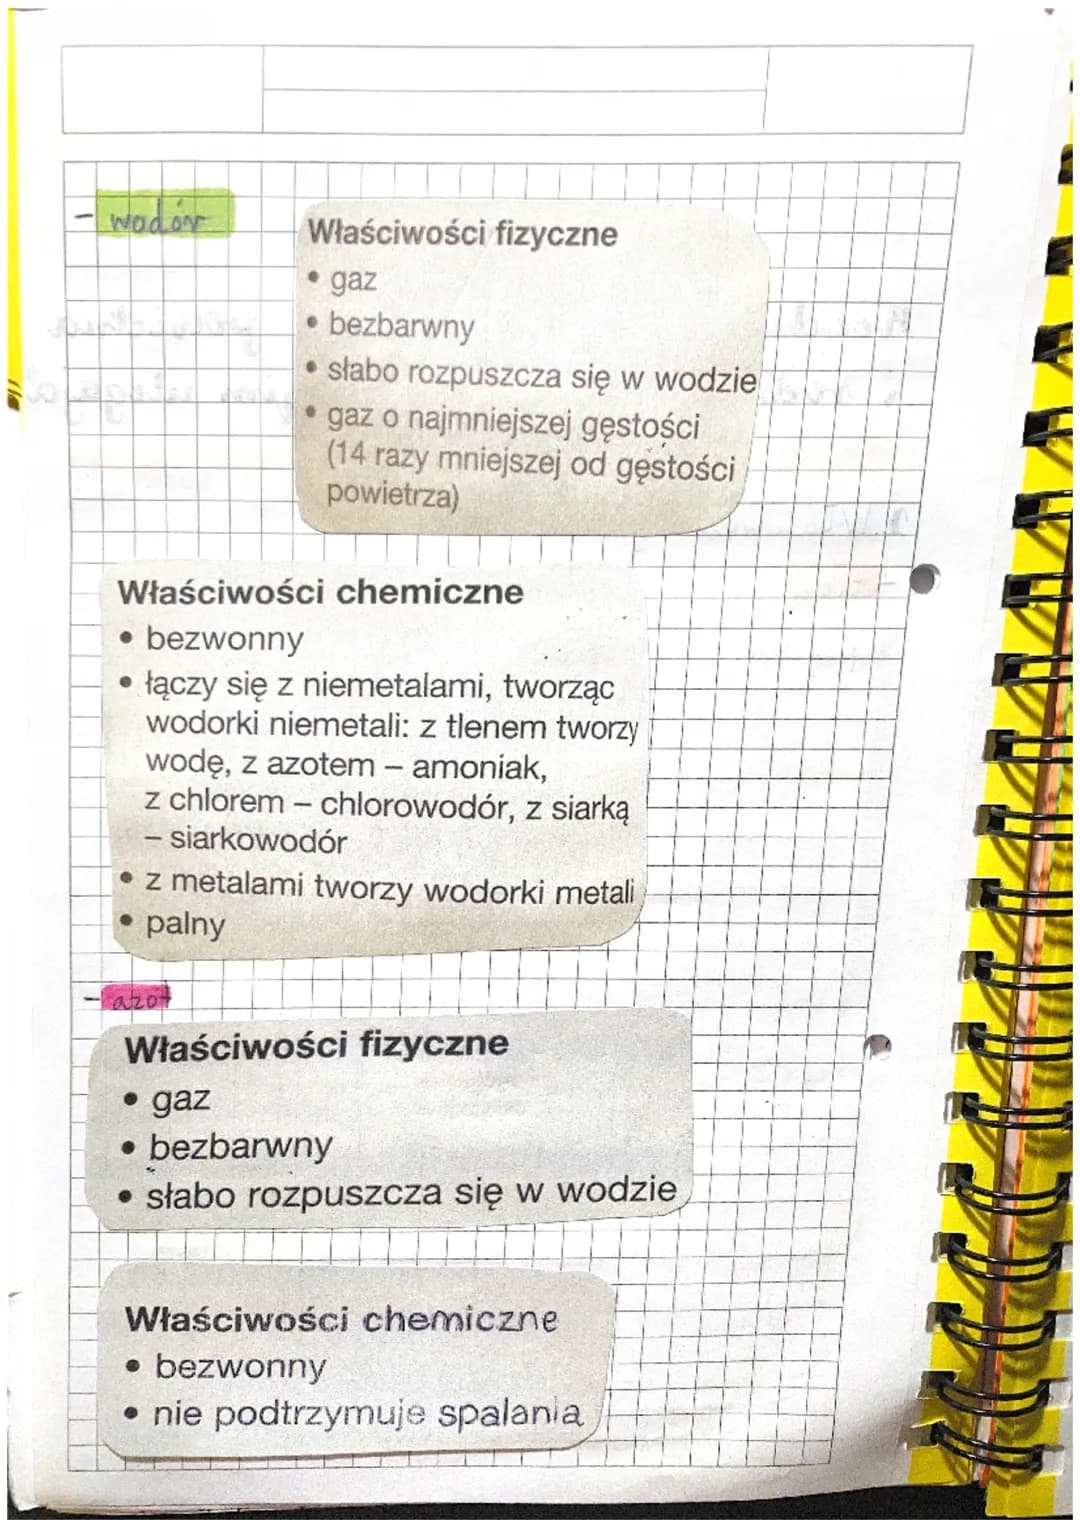 - wodór
Właściwości fizyczne
• gaz
• bezbarwny
• słabo rozpuszcza się w wodzie
• gaz o najmniejszej gęstości
(14 razy mniejszej od gęstości
powietrza)
Właściwości chemiczne
• bezwonny
• łączy się z niemetalami, tworząc
wodorki niemetali: z tlenem tworzy
wodę, z azotem – amoniak,
z chlorem – chlorowodór, z siarką
– siarkowodór
• z metalami tworzy wodorki metali
• palny
- azot
Właściwości fizyczne
• gaz
• bezbarwny
• słabo rozpuszcza się w wodzie
Właściwości chemiczne
• bezwonny
• nie podtrzymuje spalania